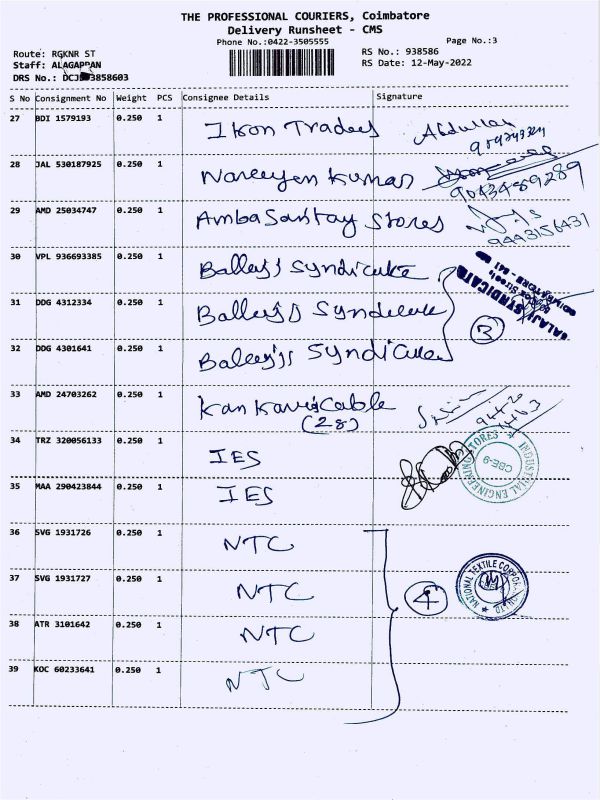 THE PROFESSIONAL COURIERS, Coimbatore
Delivery Runsheet - CMS
Phone No.:0422-3505555
Page No.:3
Route: RGKNR ST
RS No.: 938586
Staff: ALAGAPPAN
RS Date: 12-May-2022
DRS No.: 3858603
S No Consignment No Weight PCS Consignee Details Signature
27 BDI 1579193 0.250 1 Ikon Traders Abdullah
28 JAL 530187925 0.250 1 Nareyen Kumar
9043489289
29 AMD 25034747 0.250 1 Amba Santay Stores
9443156431
30 VPL 936693385 0.250 1 Balleys Syndicate
31 DDG 4312334 0.250 1 Balleys Syndicate
3
BALAJI SYNDICATE
32 DDG 4301641 0.250 1 Syndicate
33 AMD 24703262 0.250 1 Cable
(28)
34 TRZ 320056133 0.250 1 IES
INDUSTRIAL ENGINEERING STORES
CBE-9
35 MAA 290423844 0.250 1 IES
36 SVG 1931726 0.250 1 NTC
37 SVG 1931727 0.250 1 NTC
4
NATIONAL TEXTILE
38 ATR 3101642 0.250 1 NTC
39 KOC 60233641 0.250 1 NTC